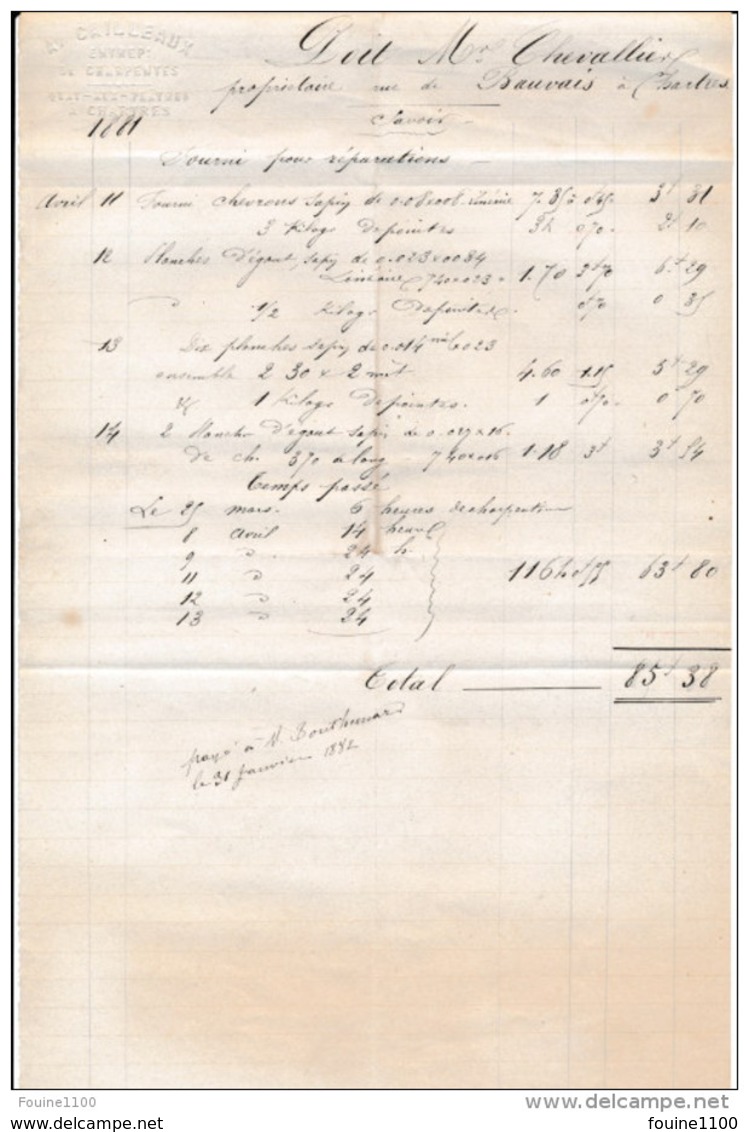 A. CAILLEAUX
ENTREP.
DE CHARPENTES
A CHARTRES
Doit Mr Chevallier
propriétaire rue de Bauvais à Chartres
1881 Savoir
Fourni pour réparations
Avril 11 Fourni chevrons sapin de 0.08 x 008 linéaire 7.85 à 3f 81
3 Kilogs de pointes 3k 070 2f 10
12 Planches d'égout, sapin de 0.023 x 0034
Linéaire 740 x 023 = 1.70 3f70 6f 29
1/2 Kilogs de pointes. 070 0 35
13 Dix planches sapin de 0.014 mil 023
ensemble 2 30 x 2 mèt 4.60 1.15 5f 29
1 Kilogs de pointes. 1 070 0 70
14 2 Planches d'égout sapin de 0.027 x 16.
de ch. 370 de long 740 x 016 1.18 3f 3f 54
Temps passé
Le 25 mars. 6 heures de charpentier
8 avril 14 heures
9 " 24 h.
11 " 24 116 h 0f55 63f 80
12 " 24
13 " 24
Total 85f 38
payé à M. Bouthemard
le 31 janvier 1882
Fouine1100
delcampe.net
Fouine1100
www.delcampe.net
fouine1100